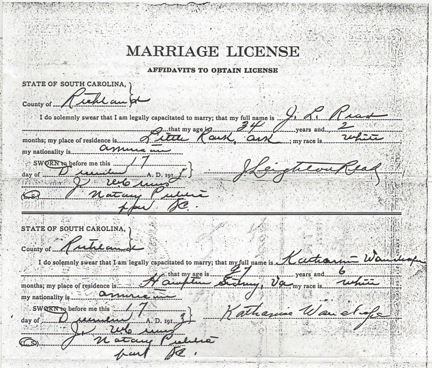 MARRIAGE LICENSE
AFFIDAVITS TO OBTAIN LICENSE
STATE OF SOUTH CAROLINA,
County of Richland
I do solemnly swear that I am legally capacitated to marry; that my full name is J. L. Read
that my age is 34 years and 2
months; my place of residence is Little Rock, Ark ; my race is white
my nationality is American
SWORN to before me this 17
day of A. D. 191 J Leighton Read
J.
Notary Public
for S.C.
STATE OF SOUTH CAROLINA,
County of Richland
I do solemnly swear that I am legally capacitated to marry; that my full name is Katharine
that my age is 27 years and 6
months; my place of residence is Hampton Sidney, Va my race is white
my nationality is American
SWORN to before me this 17
day of A. D. 191 Katharine
J.
Notary Public
for S.C.